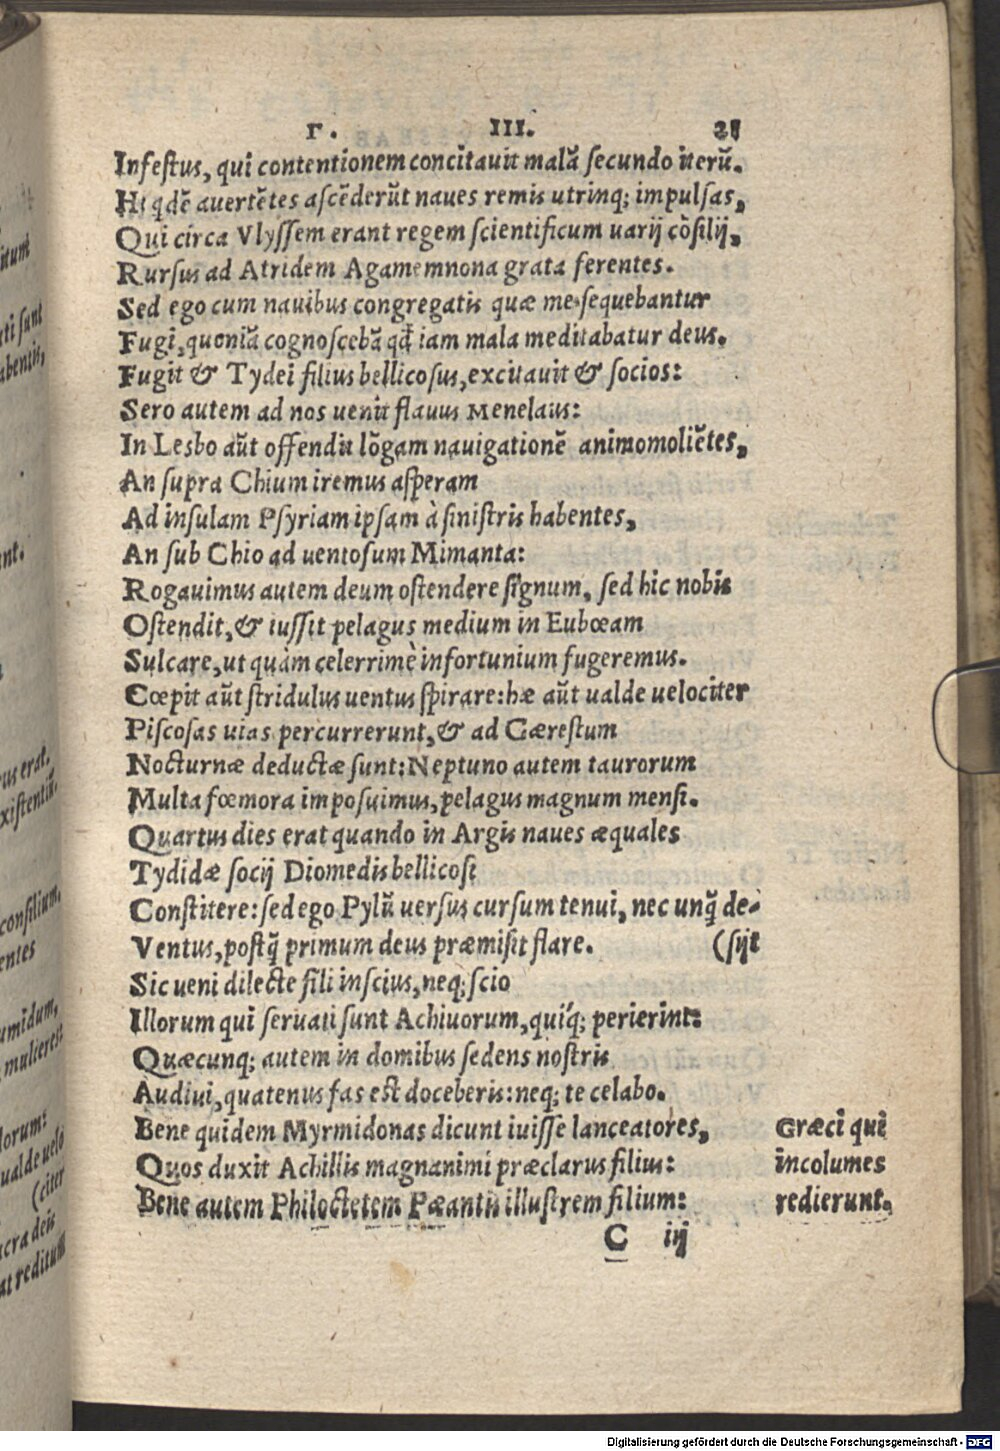 Γ. III. 21
Infestus, qui contentionem concitauit malã secundo iterũ.
Hi qdẽ auertẽtes ascẽderũt naues remis utrinq; impulsas,
Qui circa Vlyssem erant regem scientificum uarij cõsilij,
Rursus ad Atridem Agamemnona grata ferentes.
Sed ego cum nauibus congregatis quæ me sequebantur
Fugi, quoniã cognoscebã qđ iam mala meditabatur deus.
Fugit & Tydei filius bellicosus, excitauit & socios:
Sero autem ad nos uenit flauus Menelaus:
In Lesbo aũt offendit lõgam nauigationẽ animomoliẽtes,
An supra Chium iremus asperam
Ad insulam Psyriam ipsam à sinistris habentes,
An sub Chio ad uentosum Mimanta:
Rogauimus autem deum ostendere signum, sed hic nobis
Ostendit, & iussit pelagus medium in Eubœam
Sulcare, ut quàm celerrimè infortunium fugeremus.
Cœpit aũt stridulus uentus spirare: hæ aũt ualde uelociter
Piscosas uias percurrerunt, & ad Gærestum
Nocturnæ deductæ sunt: Neptuno autem taurorum
Multa fœmora imposuimus, pelagus magnum mensi.
Quartus dies erat quando in Argis naues æquales
Tydidæ socij Diomedis bellicosi
Constitere: sed ego Pylũ uersus cursum tenui, nec unq̃ de-
Ventus, postq̃ primum deus præmisit flare. (sijt
Sic ueni dilecte fili inscius, neq; scio
Illorum qui seruati sunt Achiuorum, quiq́; perierint:
Quæcunq; autem in domibus sedens nostris
Audiui, quatenus fas est doceberis: neq; te celabo.
Bene quidem Myrmidonas dicunt iuisse lanceatores,
Quos duxit Achillis magnanimi præclarus filius:
Bene autem Philoctetem Pæantis illustrem filium:
Græci qui
incolumes
redierunt.
C iij
itant
ati sunt
abentis,
nt.
us erat.
xistentiũ,
consilium.
entes
umidum,
mulieres:
lorum:
ualde uelo
(citer
cra deis
at reditum
Digitalisierung gefördert durch die Deutsche Forschungsgemeinschaft - DFG